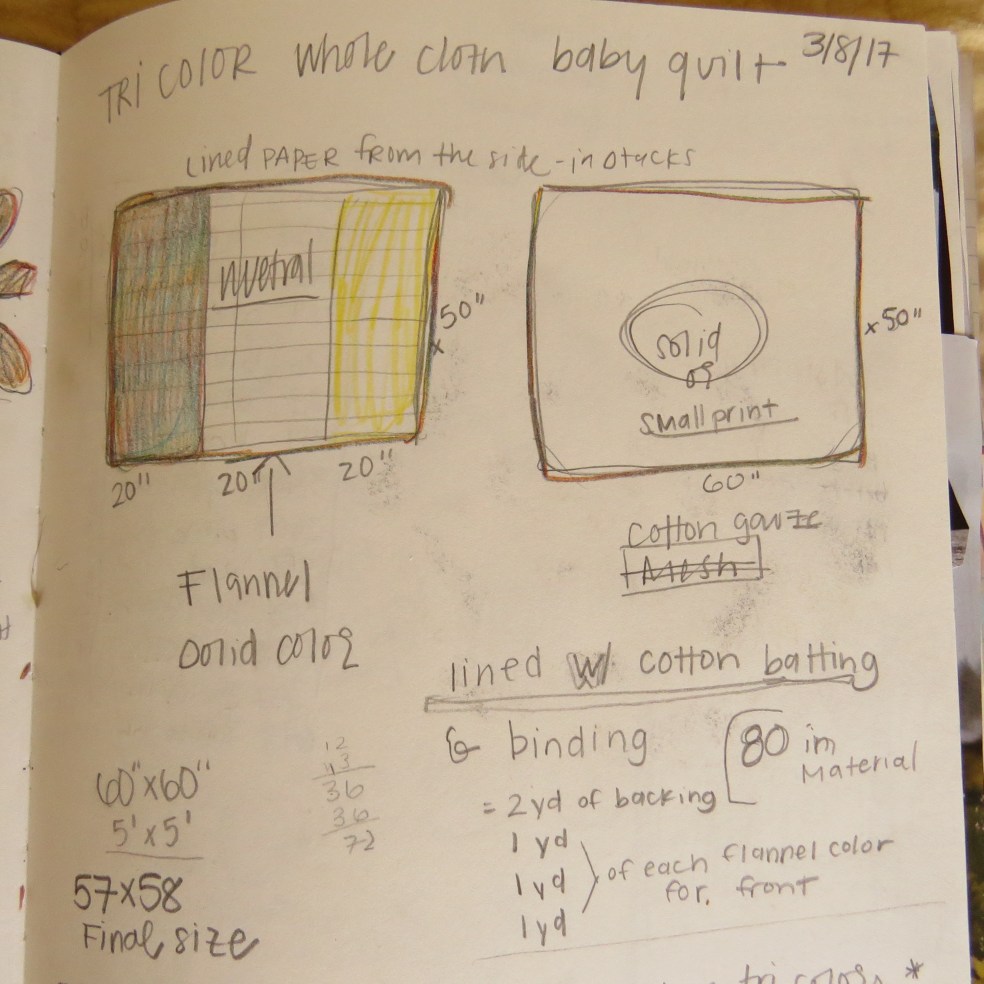 TRI COLOR whole cloth baby quilt 3/8/17
Lined PAPER from the side - in Otacks
Nuetral
50"
x
20" 20" 20"
solid
or
small print
x 50"
60"
Flannel
Oolid color
cotton gauze
Mesh
lined w/ cotton batting
& binding
80 in
Material
= 2 yd of backing
1 yd
1 yd
1 yd
of each flannel color
for. front
60" x 60"
5' x 5'
57x58
Final size
12
x3
36
36
72
tri color *